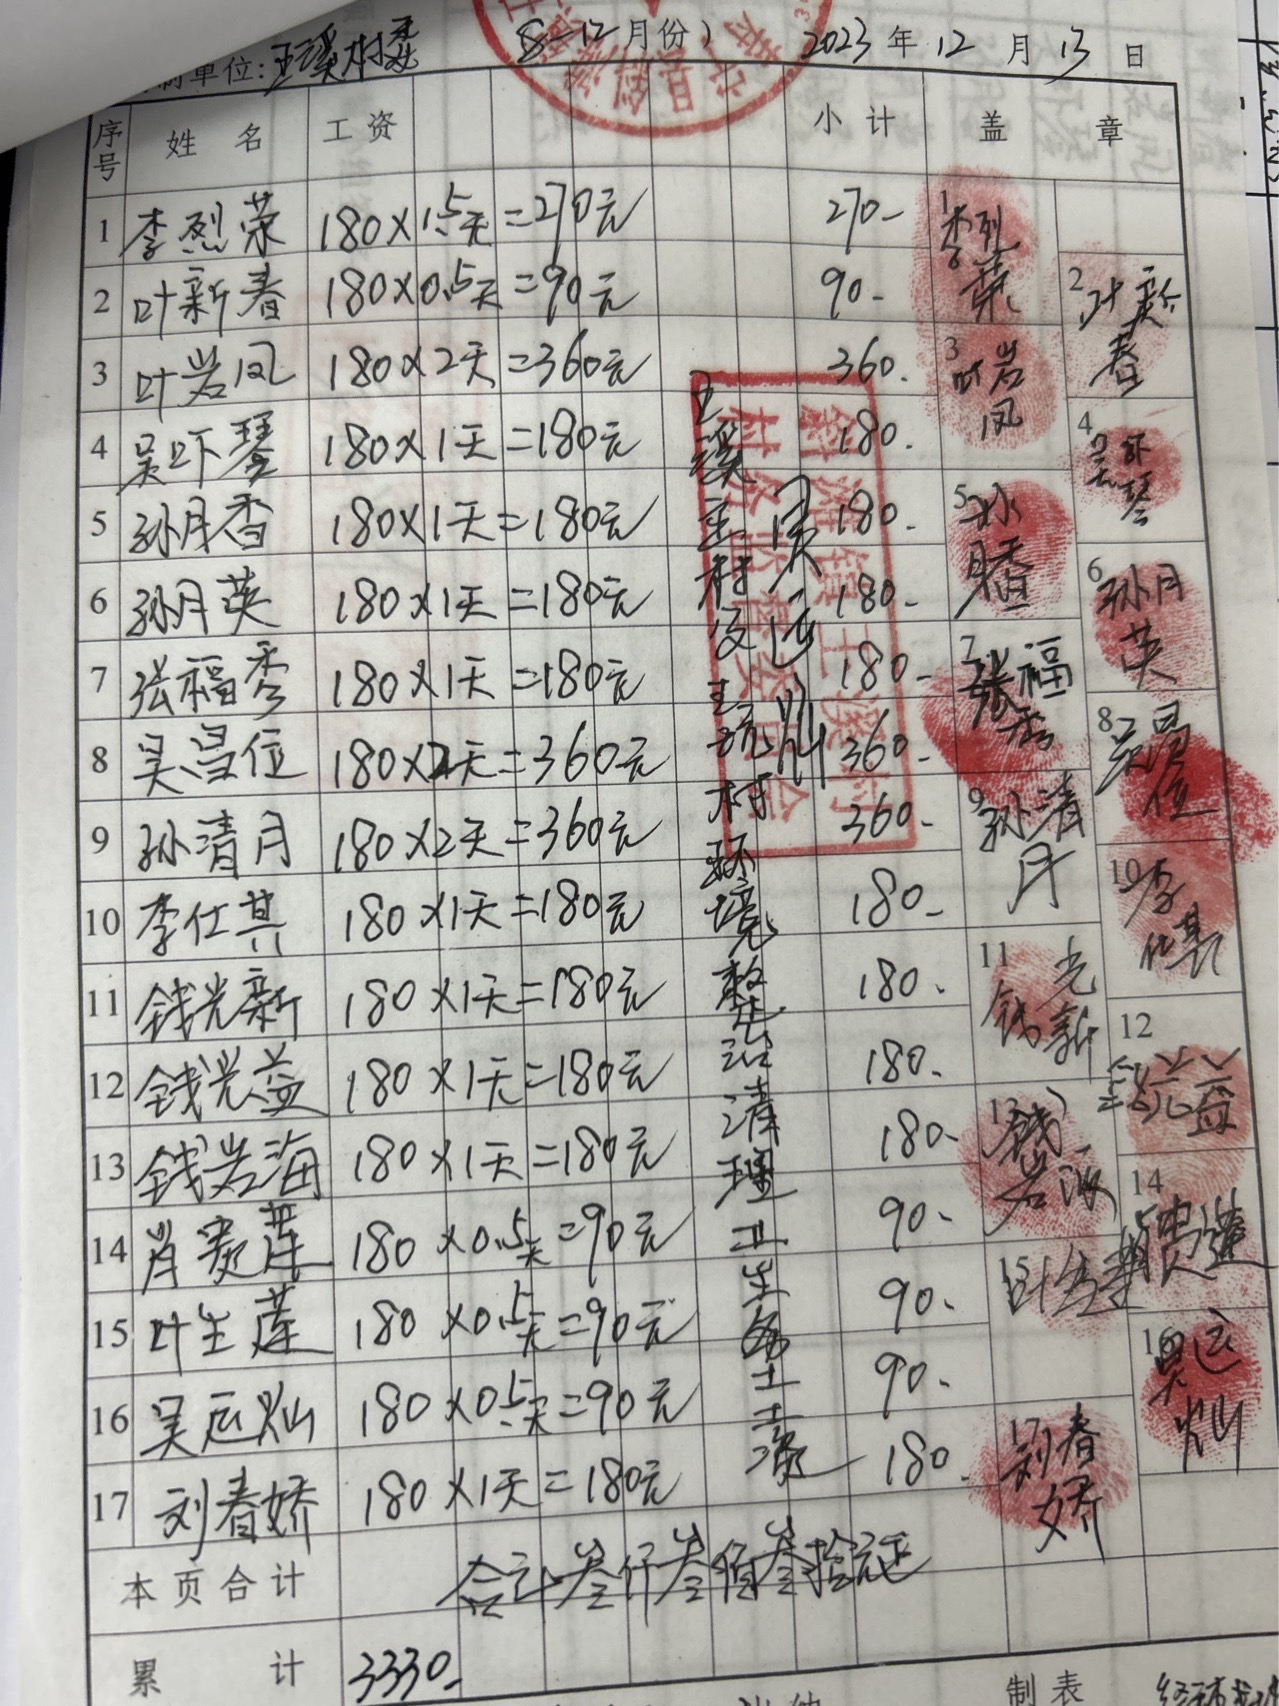 制单位:王溪村委 (8-12月份) 2023年12月13日
序号 姓名 工资 小计 盖章
1 李烈荣 180×1.5天=270元 270-
2 叶新春 180×0.5天=90元 90-
3 叶岩凤 180×2天=360元 360-
4 吴吓琴 180×1天=180元 180-
5 孙月香 180×1天=180元 180-
6 孙月英 180×1天=180元 180-
7 张福秀 180×1天=180元 180-
8 吴昌位 180×2天=360元 360-
9 孙清月 180×2天=360元 360-
10 李仕其 180×1天=180元 180-
11 钱光新 180×1天=180元 180-
12 钱光益 180×1天=180元 180-
13 钱岩海 180×1天=180元 180-
14 肖贵莲 180×0.5天=90元 90-
15 叶生莲 180×0.5天=90元 90-
16 吴运灿 180×0.5天=90元 90-
17 刘春娇 180×1天=180元 180-
本页合计 合计叁仟叁佰叁拾元正
累计 3330-
王溪主村及
村环境整治清理卫生
吴运灿
1李烈荣
2叶新春
3叶岩凤
4吴吓琴
5孙月香
6孙月英
7张福秀
8吴昌位
9孙清月
10李仕其
11钱光新
12钱光益
13钱岩海
14肖贵莲
15叶生莲
16吴运灿
17刘春娇
制表